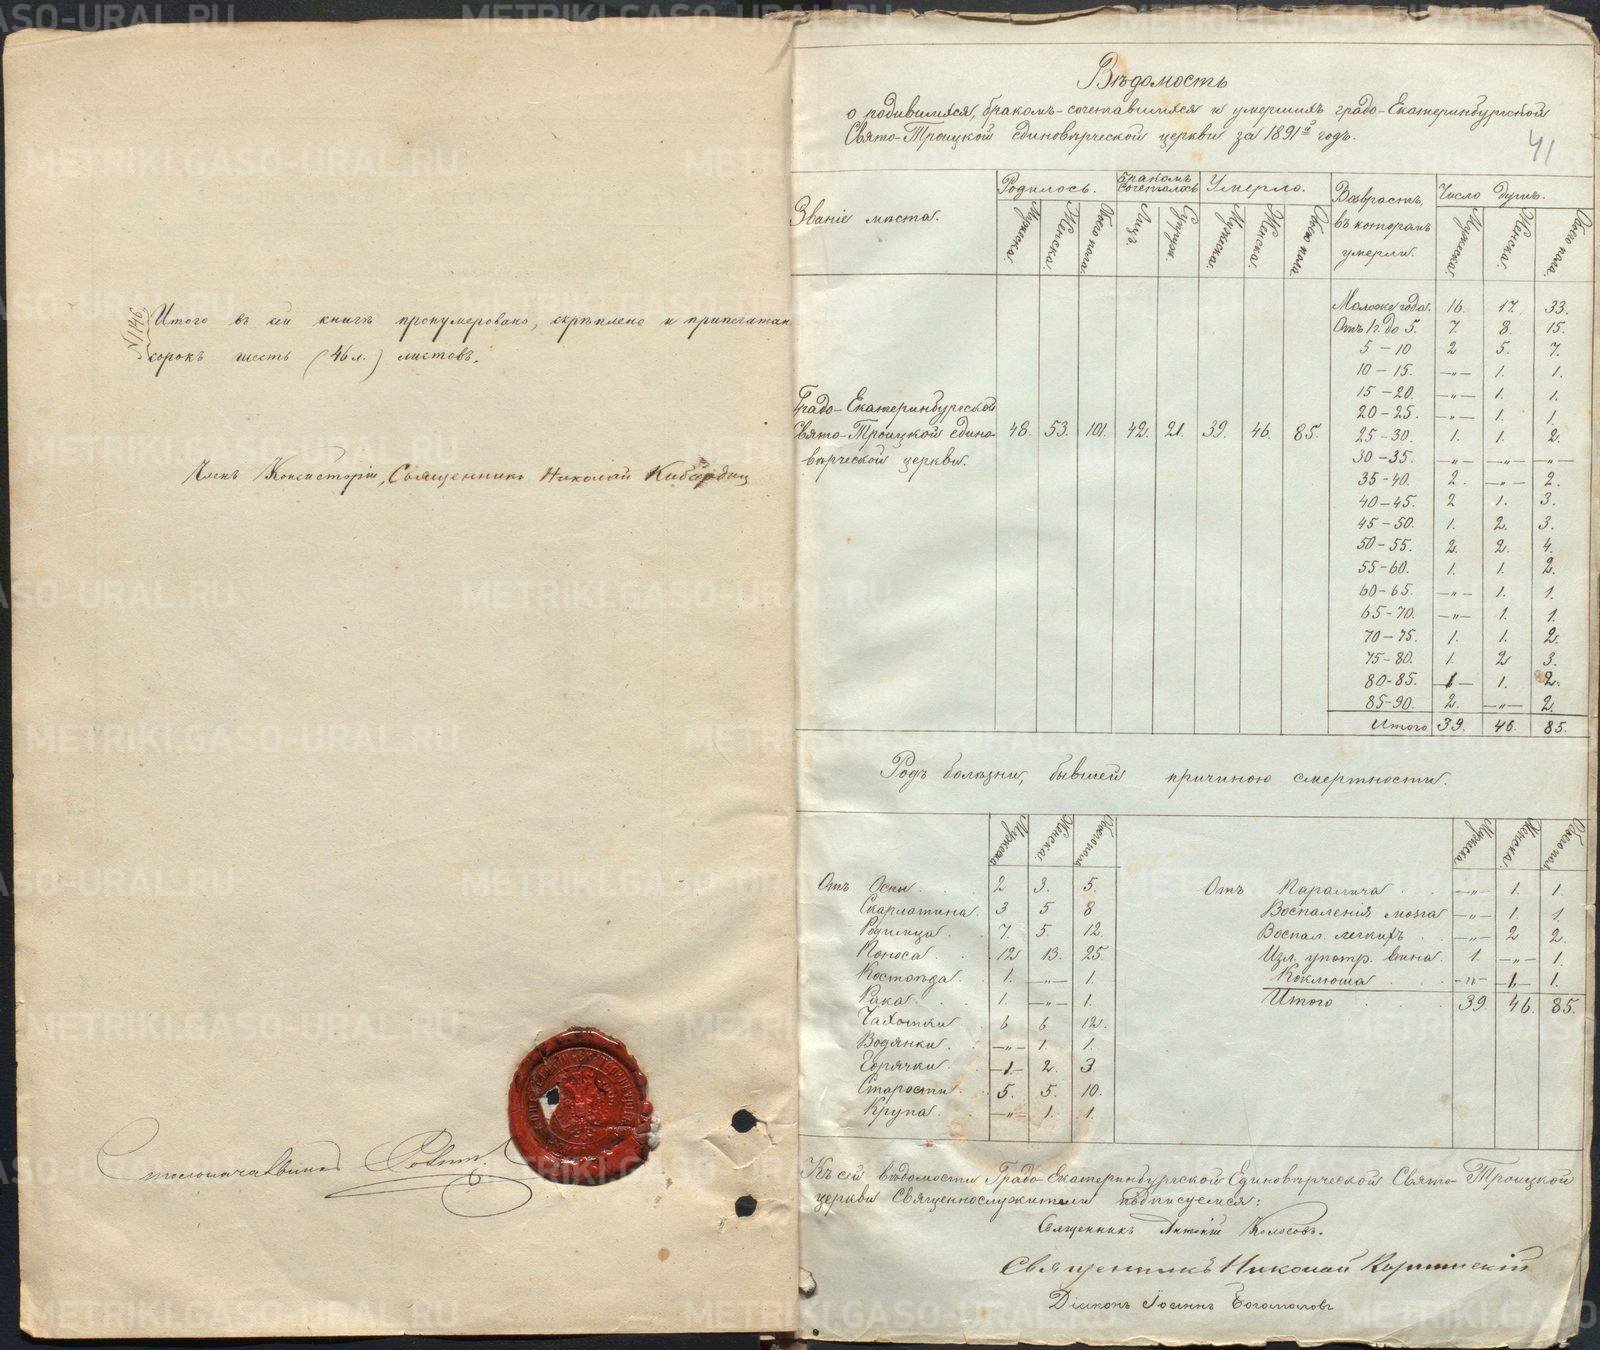 № 146.
Итого въ сей книгѣ пронумеровано, скрѣплено и припечатан
сорокъ шесть (46 л.) листовъ.
Членъ Консисторіи, Священникъ Николай
Столоначальникъ
Вѣдомость
о родившихся, бракомъ-сочетавшихся и умершихъ градо-Екатеринбургской
Свято-Троицкой единовѣрческой церкви за 1891й годъ.
41
Званіе мѣста. Родилось. Бракомъ сочеталось Умерло. Возрастъ, въ которомъ умерли. Число душъ.
Мужеска. Женска. Обоего пола. Лицъ Супруж. Мужеска. Женска. Обоего пола. Мужеска. Женска. Обоего пола.
Градо-Екатеринбургской
Свято-Троицкой едино- 48. 53. 101. 42. 21. 39. 46. 85.
вѣрческой церкви.
Моложе года. 16. 17. 33.
Отъ 1 г. до 5. 7. 8. 15.
5 – 10 2 5. 7.
10 – 15. –„– 1. 1.
15 – 20. –„– 1. 1.
20 – 25. –„– 1. 1.
25 – 30. 1. 1. 2.
30 – 35. –„– –„– –„–
35 – 40. 2. –„– 2.
40 – 45. 2 1. 3.
45 – 50. 1. 2. 3.
50 – 55. 2. 2. 4.
55 – 60. 1. 1. 2.
60 – 65. –„– 1. 1.
65 – 70. –„– 1. 1.
70 – 75. 1. 1. 2.
75 – 80. 1. 2 3.
80 – 85. 1 1. 2.
85 – 90. 2. –„– 2.
Итого 39. 46. 85.
Родъ болѣзни, бывшей причиною смертности.
Мужеска Женска. Обоего пола
Отъ Оспы . . 2 3. 5.
Скарлатина. 3 5 8
Родимца . . 7. 5. 12.
Поноса . . 12 13. 25.
Костоѣда . 1. –„– 1.
Рака . . 1. –„– 1.
Чахотки . . 6 6 12.
Водянки . –„– 1. 1.
Горячки . . 1 2. 3
Старости . . 5. 5. 10.
Крупа . . –„– 1. 1.
Мужеска Женска. Обоего пол
Отъ Паралича . . –„– 1. 1.
Воспаленія мозга –„– 1. 1.
Воспал. легкихъ . –„– 2 2.
Изл. употр. вина. 1. –„– 1.
Коклюша . . –„– 1. 1.
Итого . . . 39. 46. 85.
Къ сей вѣдомости Градо-Екатеринбургской Единовѣрческой Свято-Троицкой
церкви Священнослужители подписуемся:
Священникъ Антоній Колосовъ.
Священникъ Николай
Діаконъ Іоаннъ Богомоловъ
METRIKI.GASO-URAL.RU